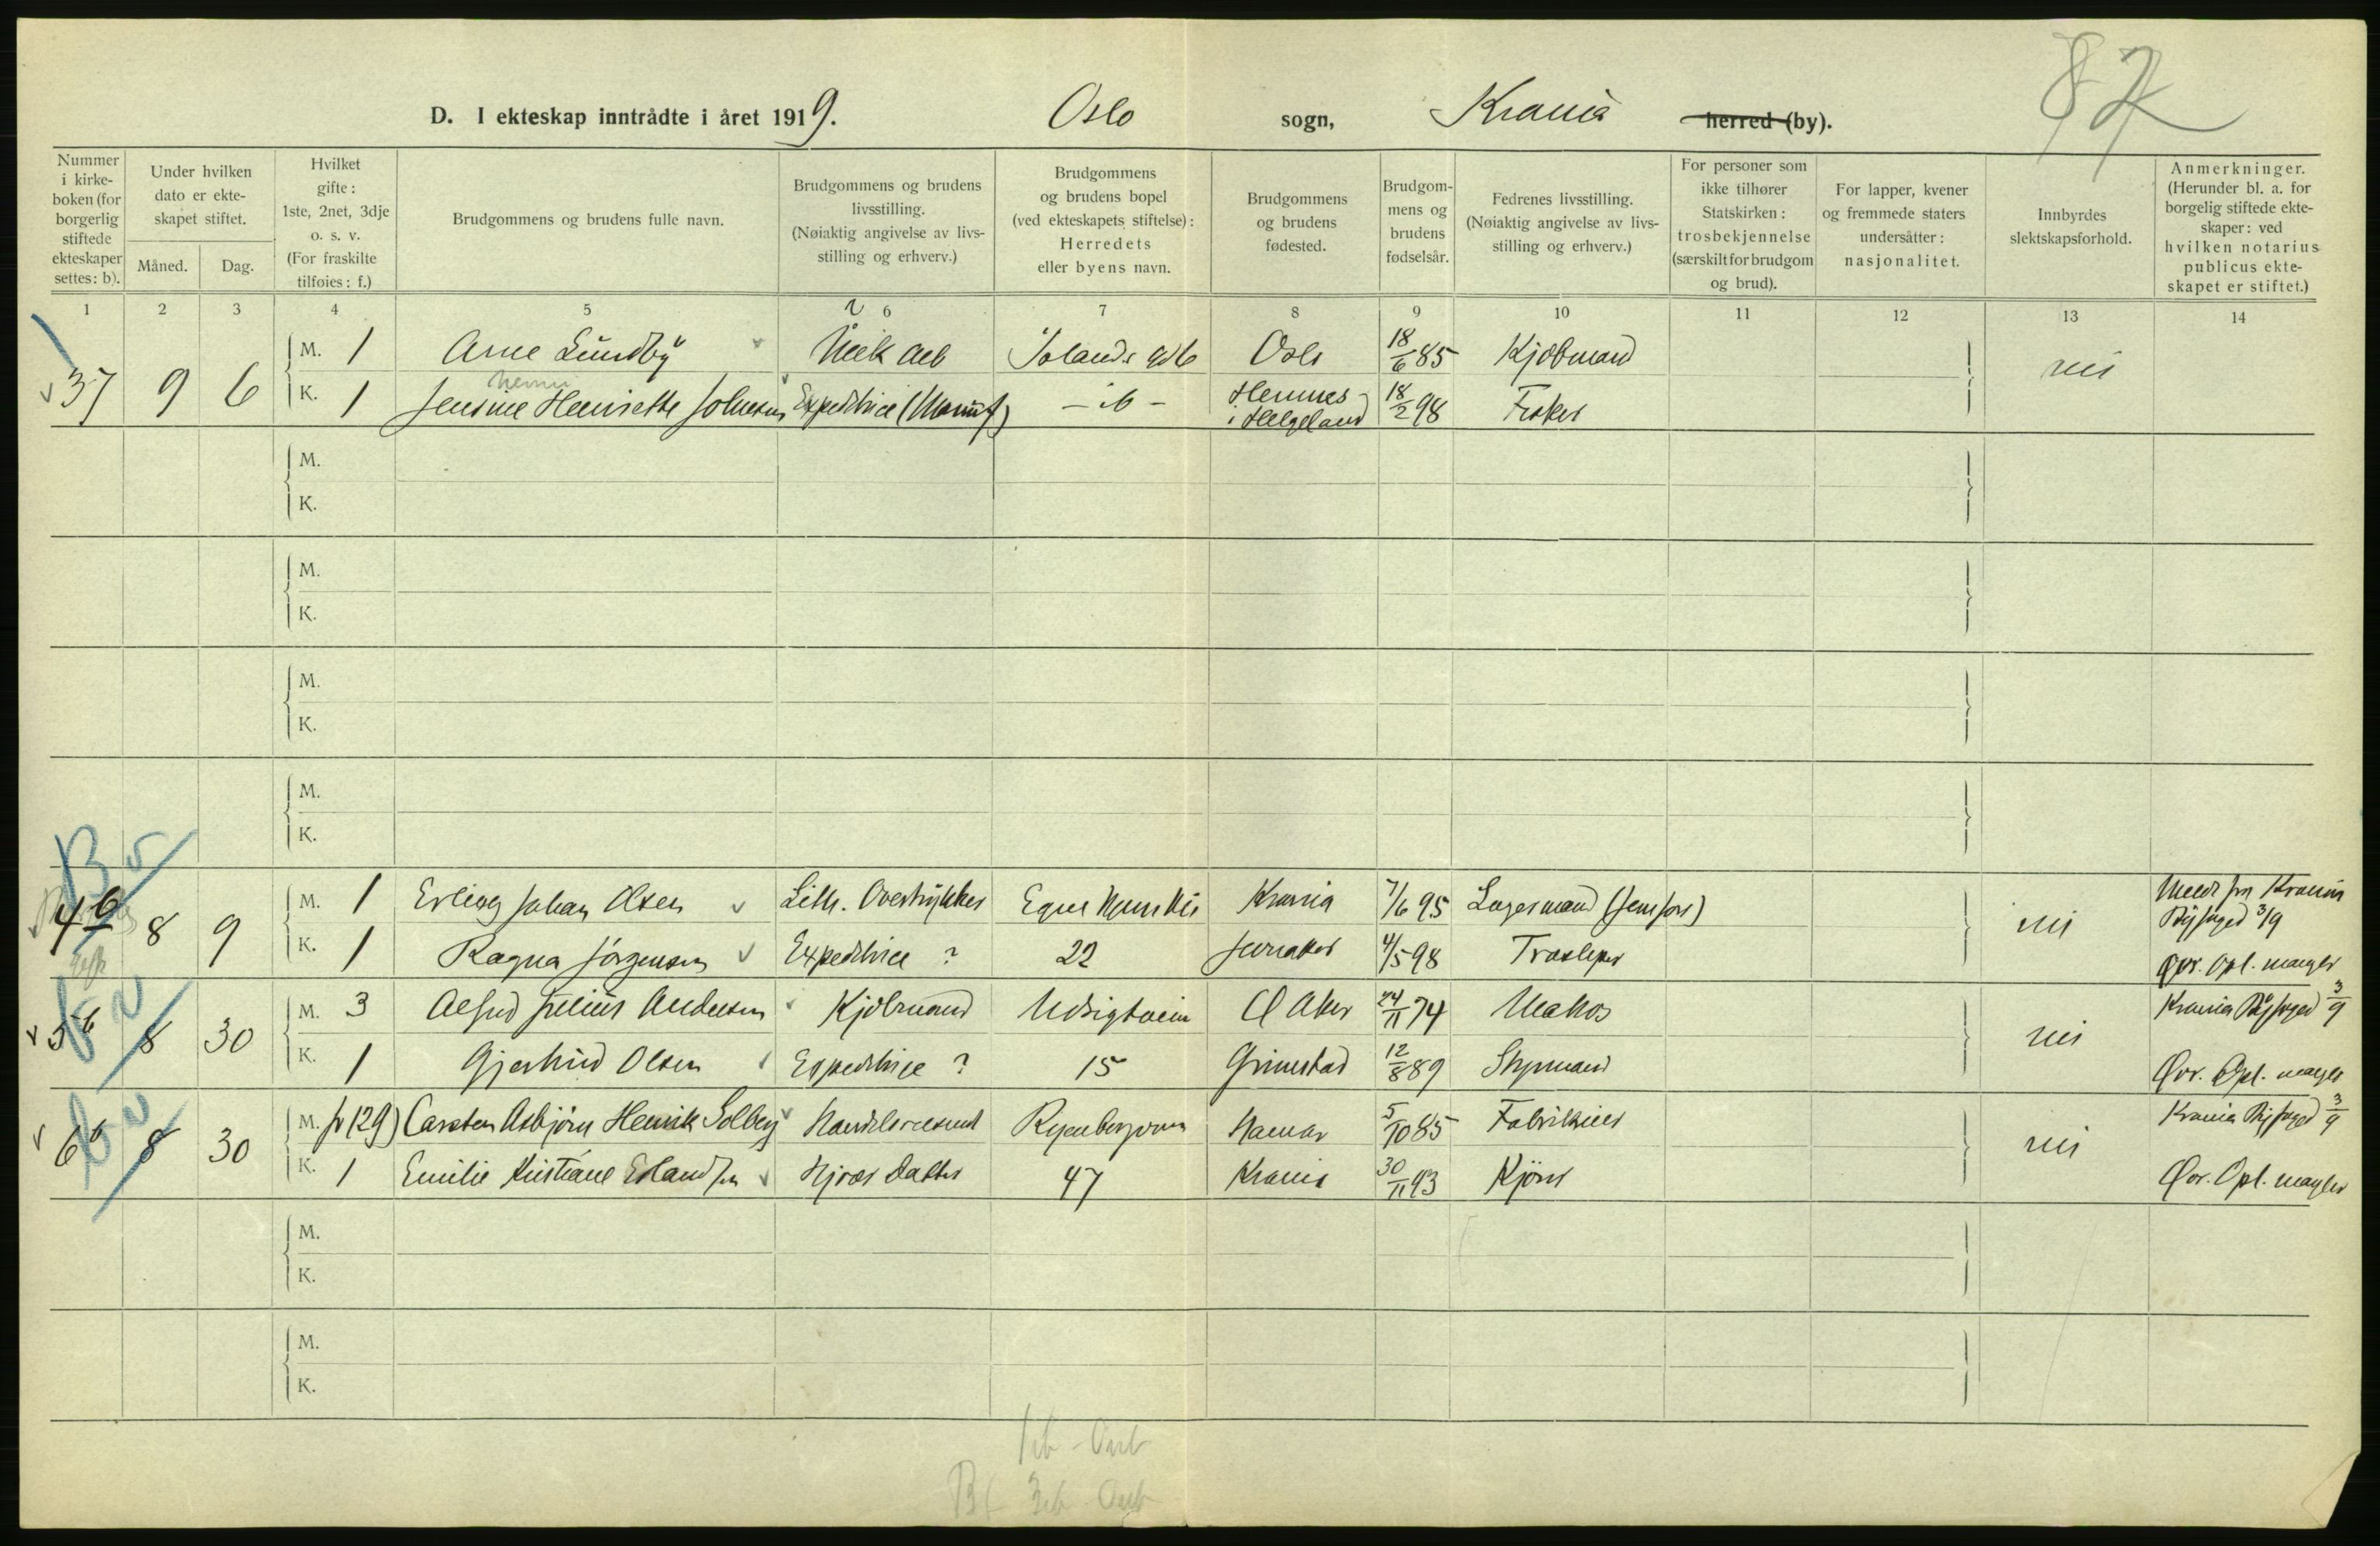 87
D. I ekteskap inntrådte i året 1919. Oslo sogn, Krania herred (by).
Nummer i kirkeboken (for borgerlig stiftede ekteskaper settes: b).
Under hvilken dato er ekteskapet stiftet.
Måned. Dag.
Hvilket gifte: 1ste, 2net, 3dje o. s. v. (For fraskilte tilføies: f.)
Brudgommens og brudens fulle navn.
Brudgommens og brudens livsstilling. (Nøiaktig angivelse av livsstilling og erhverv.)
Brudgommens og brudens bopel (ved ekteskapets stiftelse): Herredets eller byens navn.
Brudgommens og brudens fødested.
Brudgommens og brudens fødselsår.
Fedrenes livsstilling. (Nøiaktig angivelse av livsstilling og erhverv.)
For personer som ikke tilhører Statskirken: trosbekjennelse (særskilt for brudgom og brud).
For lapper, kvener og fremmede staters undersåtter: nasjonalitet.
Innbyrdes slektskapsforhold.
Anmerkninger. (Herunder bl. a. for borgelig stiftede ekteskaper: ved hvilken notarius publicus ekteskapet er stiftet.)
1 2 3 4 5 6 7 8 9 10 11 12 13 14
M. 1 Arne Lundby Oslo 18/6 85 Kjøbmand
37 9 6 nei
K. 1 Jensine Henriette Johnsen Expeditrice (Manuf) - ib - Hemnes i Helgeland 18/2 98 Fisker
M.
K.
M.
K.
M.
K.
M.
K.
M. 1 Erling Johan Olsen Lith. Overtrykker Krania 7/6 95 Lagermand
4b 8 9 nei
K. 1 Ragna Jörgensen Expeditrice ? 22 Jevnaker 4/5 98
Krania Byfoged 3/9
M. 3 Alfred Julius Andersen Kjøbmand Udsigtveien Ø Aker 24/11 74
5b 8 30 nei
K. 1 Gjertrud Olsen Expeditrice ? 15 Grimstad 12/8 89 Styrmand
Krania Byfoged 3/9
Ovr. Opl. mangler
M. fr (29) Carsten Asbjörn Henrik Solberg Ryenbergveien Hamar 5/10 85 Fabrikeier
6b 8 30 nei
K. 1 Emilie Kristiane Erlandsen Hjvær. Datter 47 Krania 30/11 93 Kjörer
Krania Byfoged 3/9
Ovr. Opl. mangler
M.
K.
M.
K.